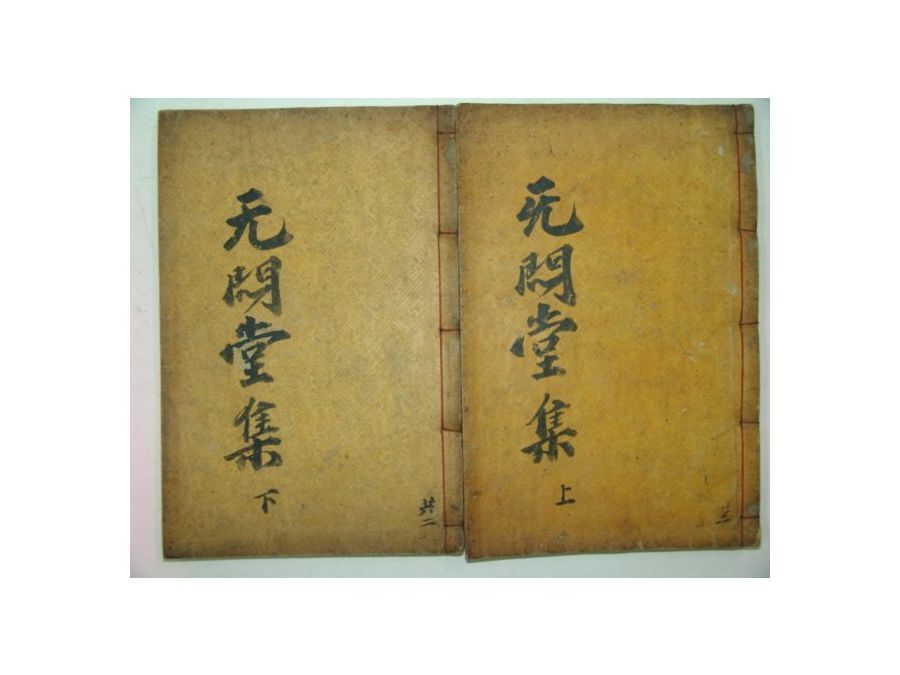 无悶堂集
上
二
无悶堂集
下
共二